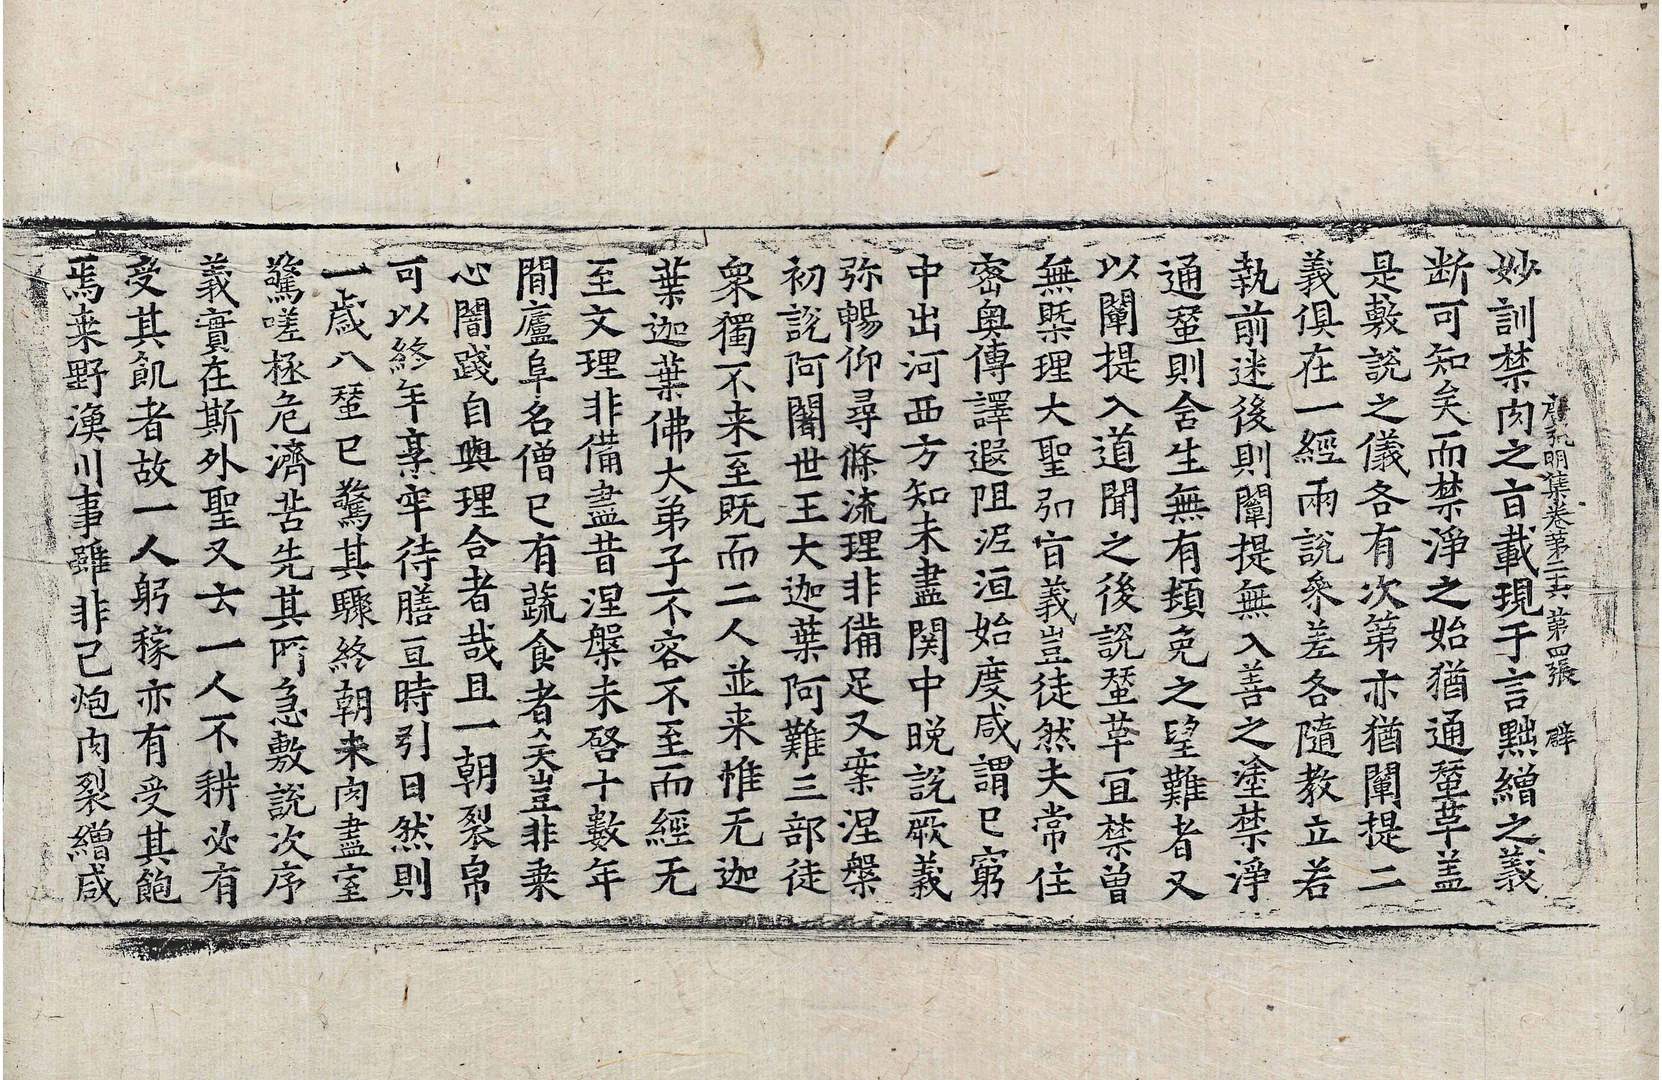 廣弘明集卷第二十六 第四張 璧
妙訓禁肉之旨載現于言黜繒之義
断可知矣而禁淨之始猶通蠶草盖
是敷說之儀各有次第亦猶闡提二
義俱在一經兩說參差各隨教立若
執前迷後則闡提無入善之塗禁淨
通蠶則含生無有頓免之望難者又
以闡提入道聞之後說蠶革宜禁曾
無槩理大聖弘旨義豈徒然夫常住
密奧傳譯遐阻泥洹始度咸謂已窮
中出河西方知未盡関中晚說厥義
弥暢仰尋條流理非備足又案涅槃
初說阿闍世王大迦葉阿難三部徒
衆獨不来至既而二人並来惟无迦
葉迦葉佛大弟子不容不至而經无
至文理非備盡昔涅槃未啓十數年
間廬阜名僧已有蔬食者矣豈非乗
心闇踐自與理合者哉且一朝裂帛
可以終年烹牢待膳亘時引日然則
一歲八蠶已驚其驟終朝未肉盡室
驚嗟拯危濟苦先其所急敷說次序
義實在斯外聖又云一人不耕必有
受其飢者故一人躬稼亦有受其飽
焉桒野漁川事雖非己炮肉裂繒咸